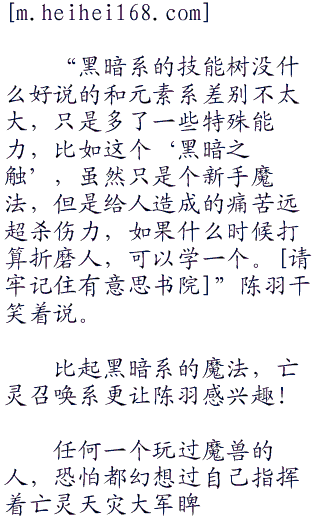 [m.heihei168.com]
“黑暗系的技能树没什
么好说的和元素系差别不太
大，只是多了一些特殊能
力，比如这个‘黑暗之
触’，虽然只是个新手魔
法，但是给人造成的痛苦远
超杀伤力，如果什么时候打
算折磨人，可以学一个。[请
牢记住有意思书院]”陈羽干
笑着说。
比起黑暗系的魔法，亡
灵召唤系更让陈羽感兴趣！
任何一个玩过魔兽的
人，恐怕都幻想过自己指挥
着亡灵天灾大军睥